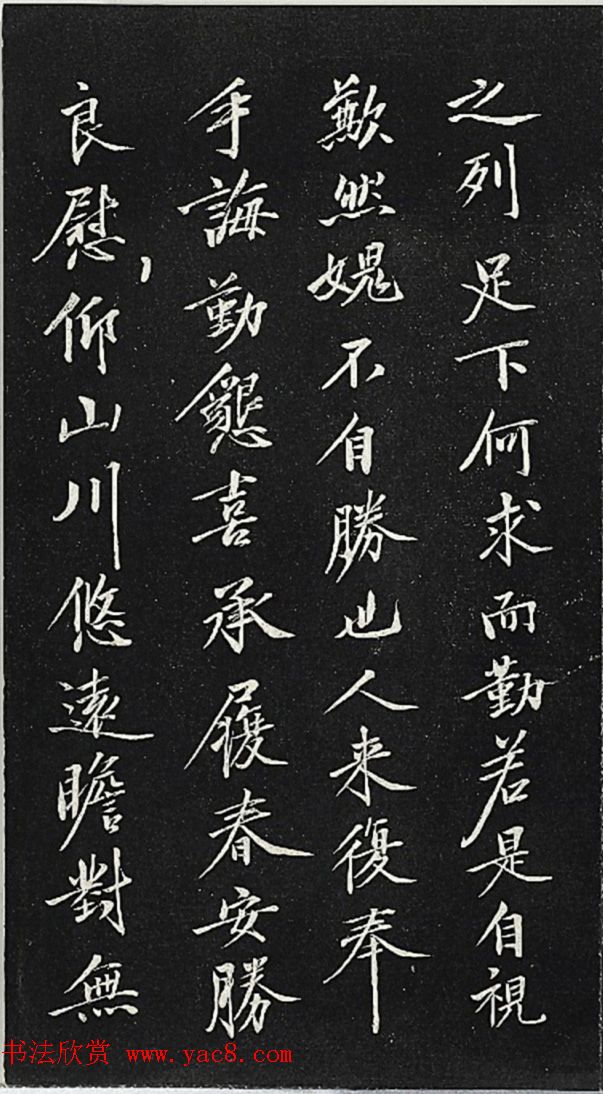 之列 足下何求而勤若是自視
歉然媿不自勝也人来復奉
手誨勤懇喜承履春安勝
良慰仰山川悠遠瞻對無
书法欣赏 www.yac8.com